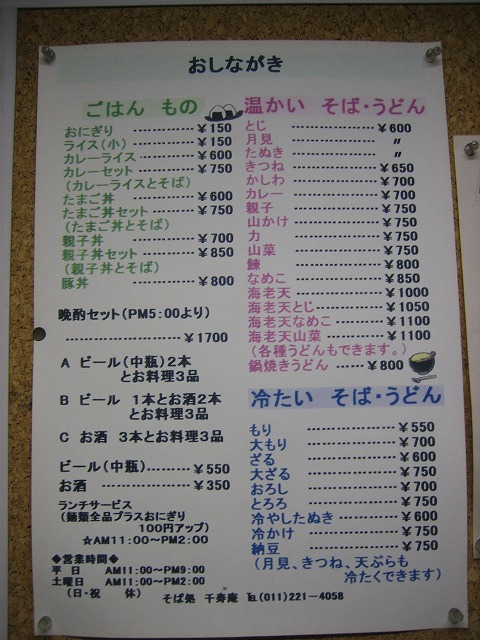 おしながき
ごはん もの
おにぎり ------------- ¥150
ライス(小) ------------- ¥150
カレーライス ------------ ¥600
カレーセット ------------ ¥750
(カレーライスとそば)
たまご丼 ------------- ¥600
たまご丼セット ----------- ¥750
(たまご丼とそば)
親子丼 --------------- ¥700
親子丼セット ----------- ¥850
(親子丼とそば)
豚丼 --------------- ¥800
晩酌セット(PM5:00より)
------------------ ¥1700
A ビール(中瓶)2本
とお料理3品
B ビール 1本とお酒2本
とお料理3品
C お酒 3本とお料理3品
ビール(中瓶)--------- ¥550
お酒 ----------------- ¥350
ランチサービス
(麺類全品プラスおにぎり
100円アップ)
☆AM11:00~PM2:00
◆営業時間◆
平 日 AM11:00~PM9:00
土曜日 AM11:00~PM2:00
(日・祝 休)
温かい そば・うどん
とじ ---------------- ¥600
月見 ---------------- 〃
たぬき ---------------- 〃
きつね ---------------- ¥650
かしわ ---------------- ¥700
カレー ---------------- ¥700
親子 ---------------- ¥750
山かけ ---------------- ¥750
力 ---------------- ¥750
山菜 ---------------- ¥750
鰊 ---------------- ¥800
なめこ ---------------- ¥850
海老天 --------------- ¥1000
海老天とじ ------------ ¥1050
海老天なめこ ---------- ¥1100
海老天山菜 ------------ ¥1100
(各種うどんもできます。)
鍋焼きうどん ----- ¥800
冷たい そば・うどん
もり --------------- ¥550
大もり --------------- ¥700
ざる --------------- ¥600
大ざる --------------- ¥750
おろし --------------- ¥700
とろろ --------------- ¥750
冷やしたぬき ---------- ¥600
冷かけ --------------- ¥750
納豆 --------------- ¥750
(月見、きつね、天ぷらも
冷たくできます)
そば処 千寿庵 ℡(011)221-4058